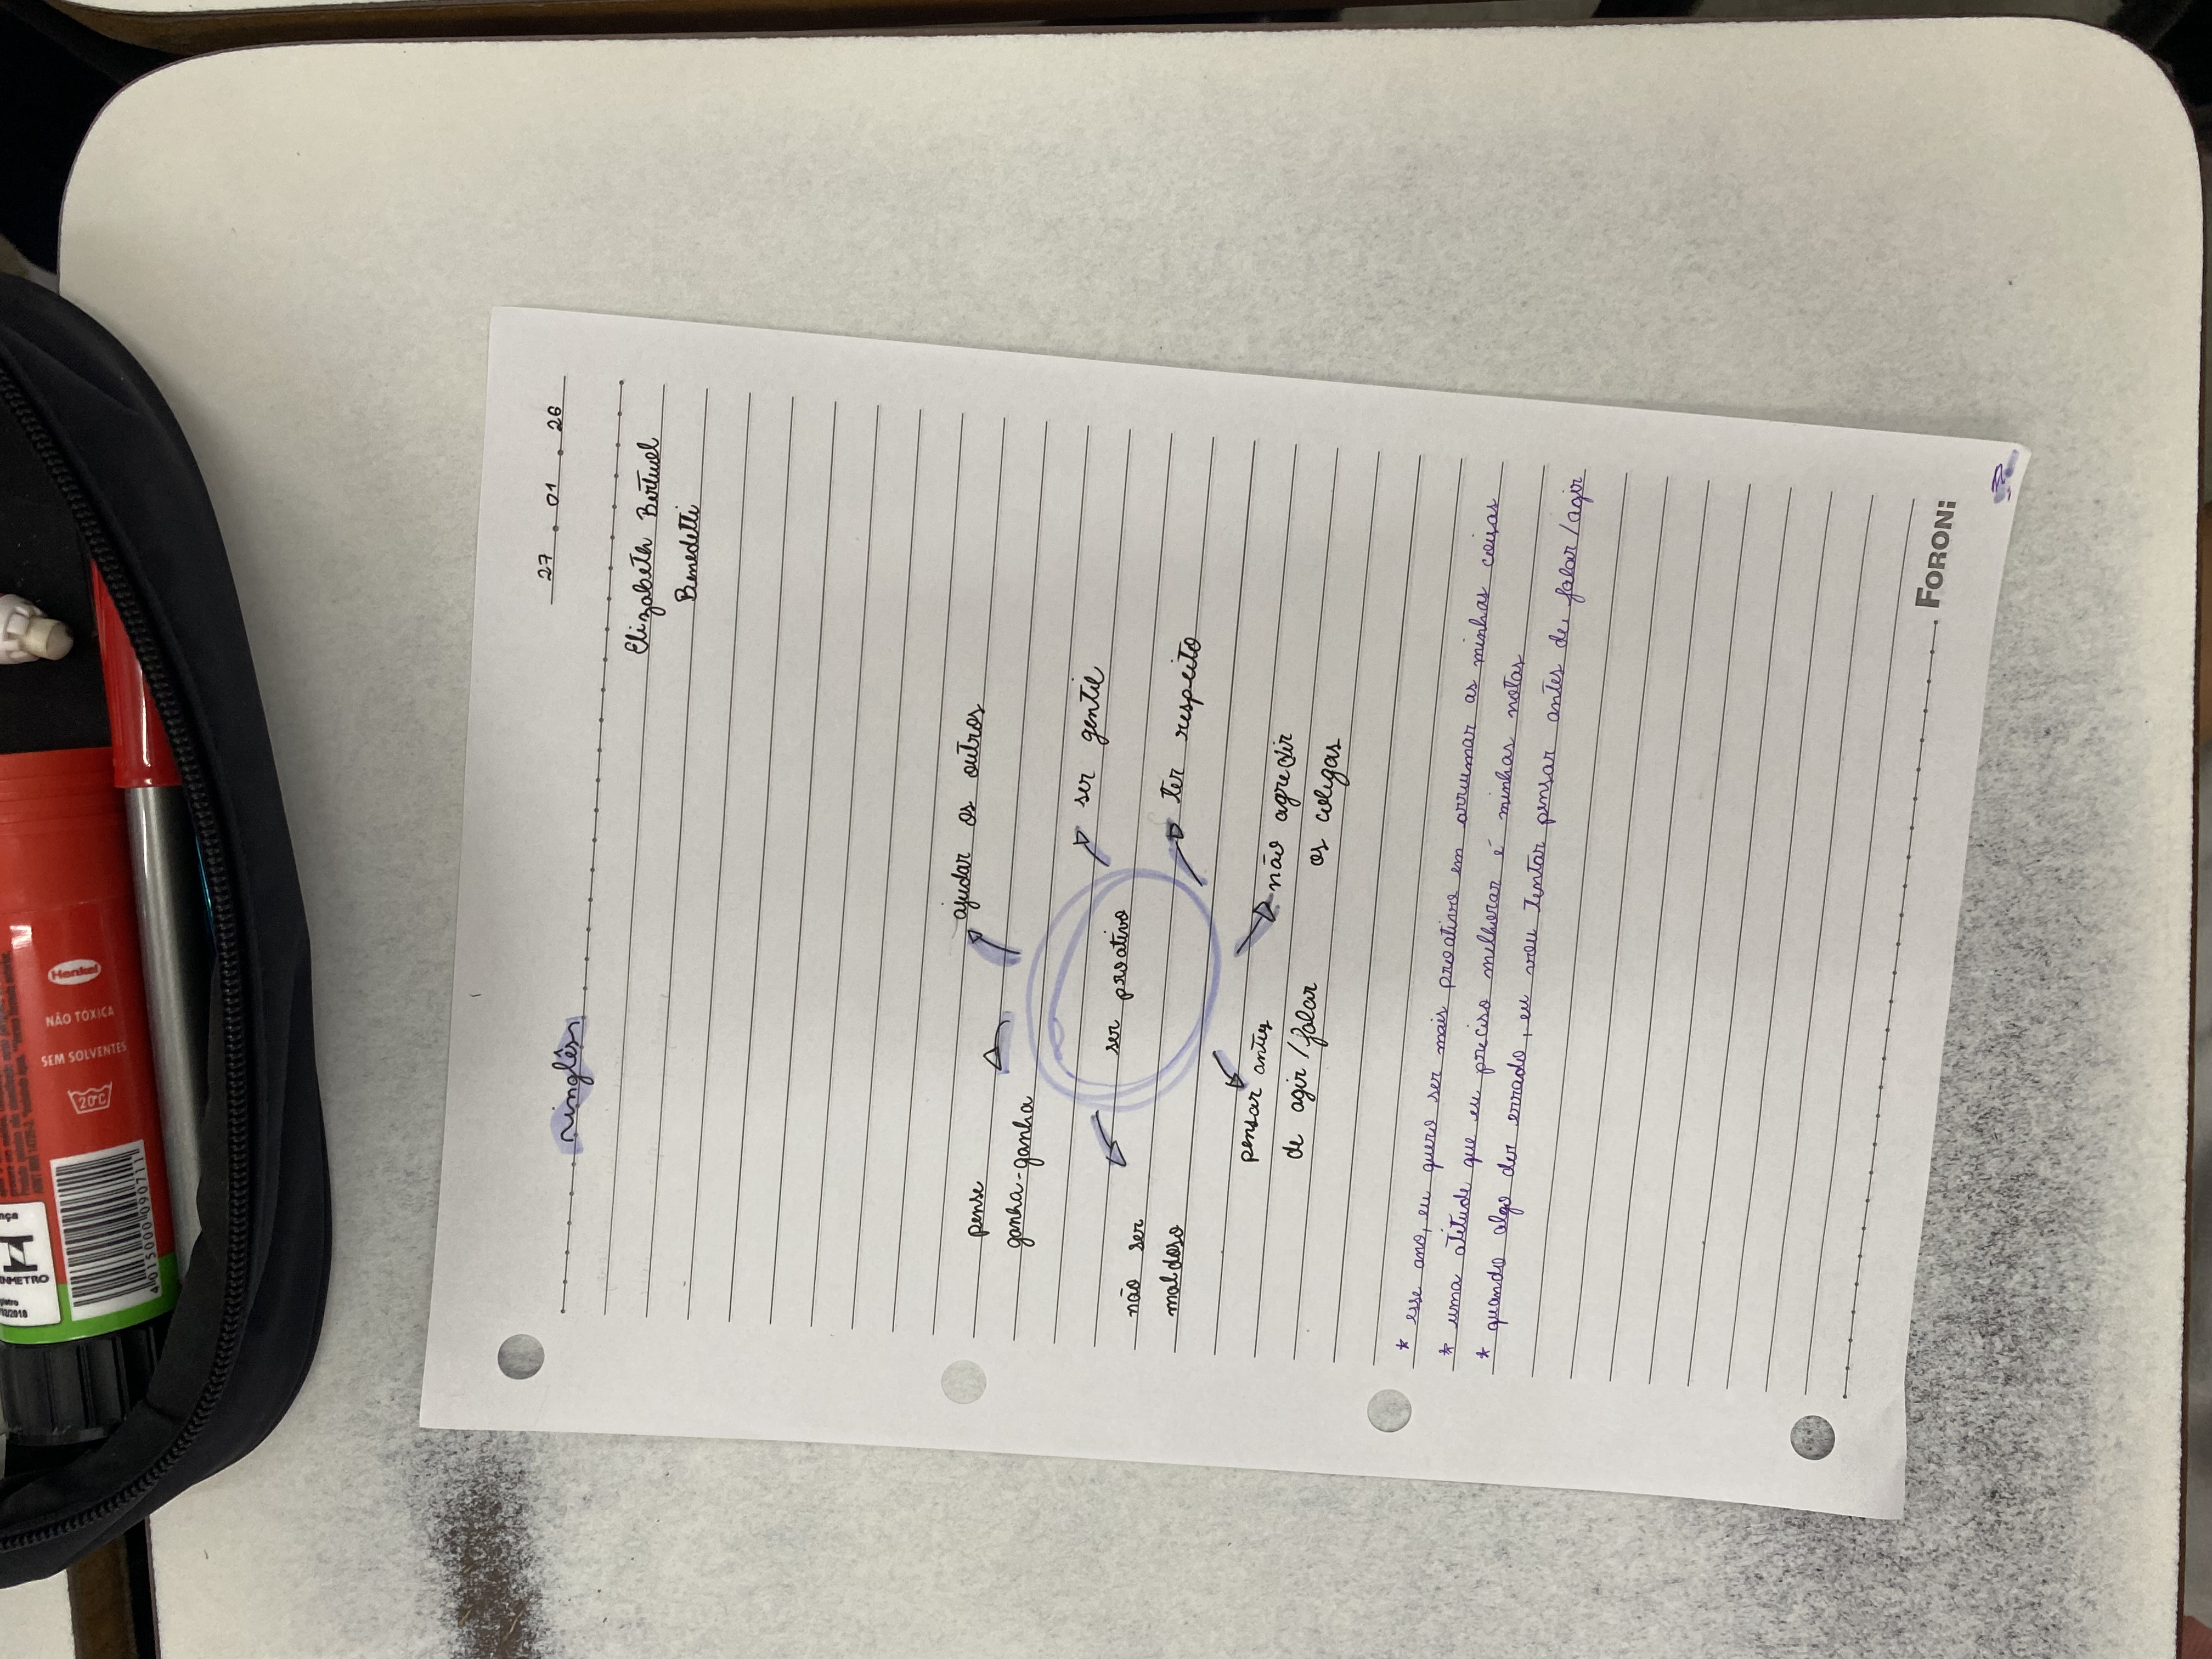 27 01 26
~inglês
Elizabeth Bertuol
Benedetti
ajudar os outros
pense
ganha-ganha
ser gentil
ser proativo
ter respeito
não ser
maldoso
não agredir
os colegas
pensar antes
de agir/falar
* esse ano, eu quero ser mais proativo em arrumar as minhas coisas
* uma atitude que eu preciso melhorar é minhas notas
* quando algo der errado, eu vou tentar pensar antes de falar/agir
FORONI
Henkel
NÃO TÓXICA
SEM SOLVENTES
20°C
INMETRO
4 015000 090711